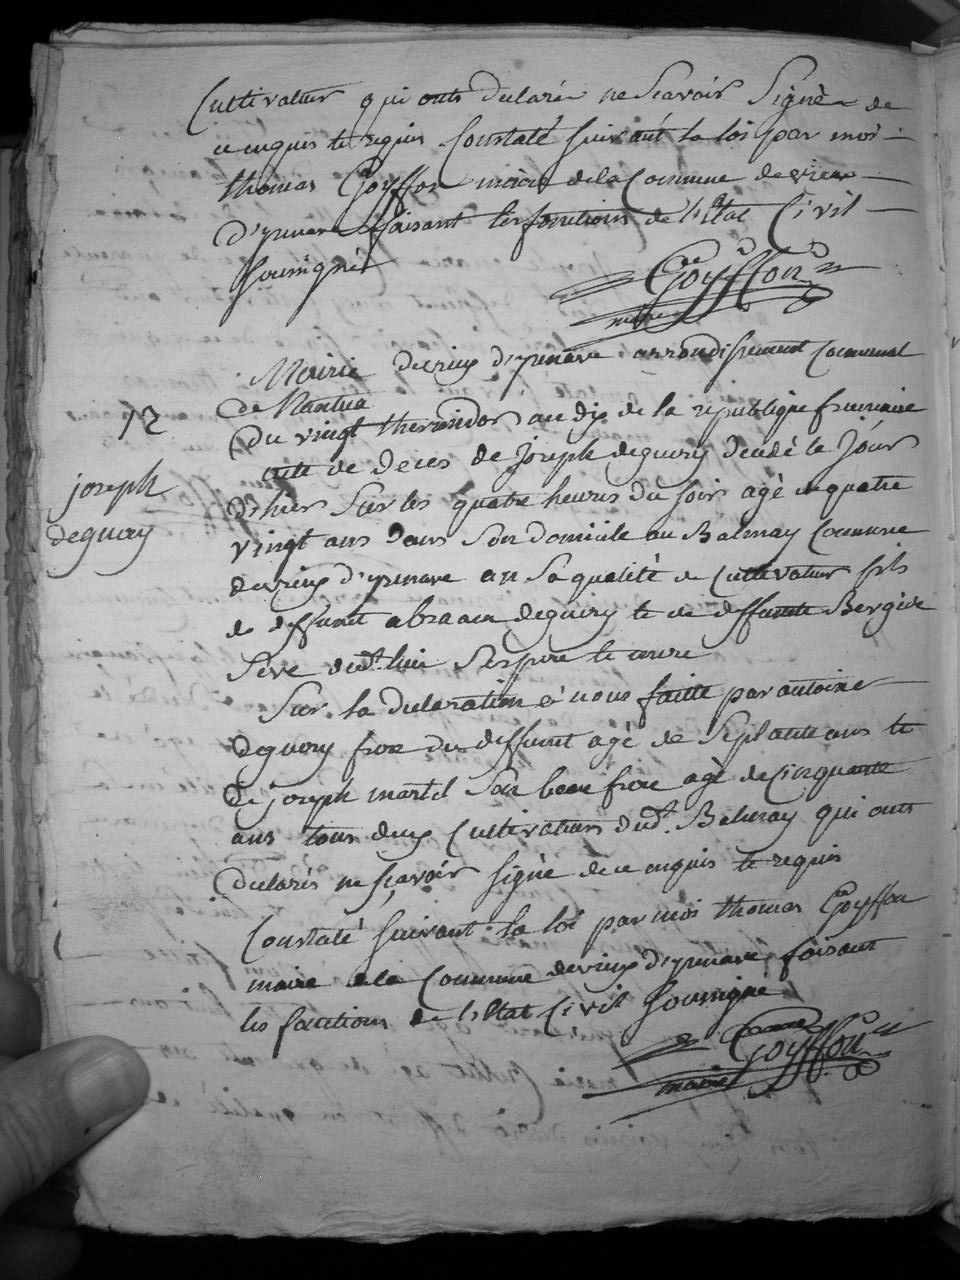 Cultivateur qui onts declaré ne scavoir signé de
ce enquis te requis Constaté suivant la loi par moi
thomas Goyffon maire de la Commune de vieux
d'yzenave faisant les fonctions de l'Etat Civil
soussigné
Goyffon
maire
Mairie de vieux d'yzenave arrondissement Communal
de Nantua
Du vingt thermidor an dix de la republique francaise
12
acte de deces de joseph deguery decedé le jour
joseph
deguery
d'hier sur les quatre heures du soir agé de quatre
vingt ans dans son domicile au Balmay Commune
de vieux d'yzenave an sa qualité de Cultivateur fils
de deffunt abraam deguery te de deffunte
Seve dudt lieu
Sur la declaration à nous faitte par antoine
deguery frere du deffunt agé de septante ans te
de joseph martel son beau frere agé de Cinquante
ans tous deux Cultivateurs dudt Balmay qui onts
declarés ne sçavoir signé de ce enquis te requis
Constaté suivant la loi par moi thomas Goyffon
maire de la Commune de vieux d'yzenave faisant
les fonctions de l'Etat Civil soussigné
Goyffon
maire